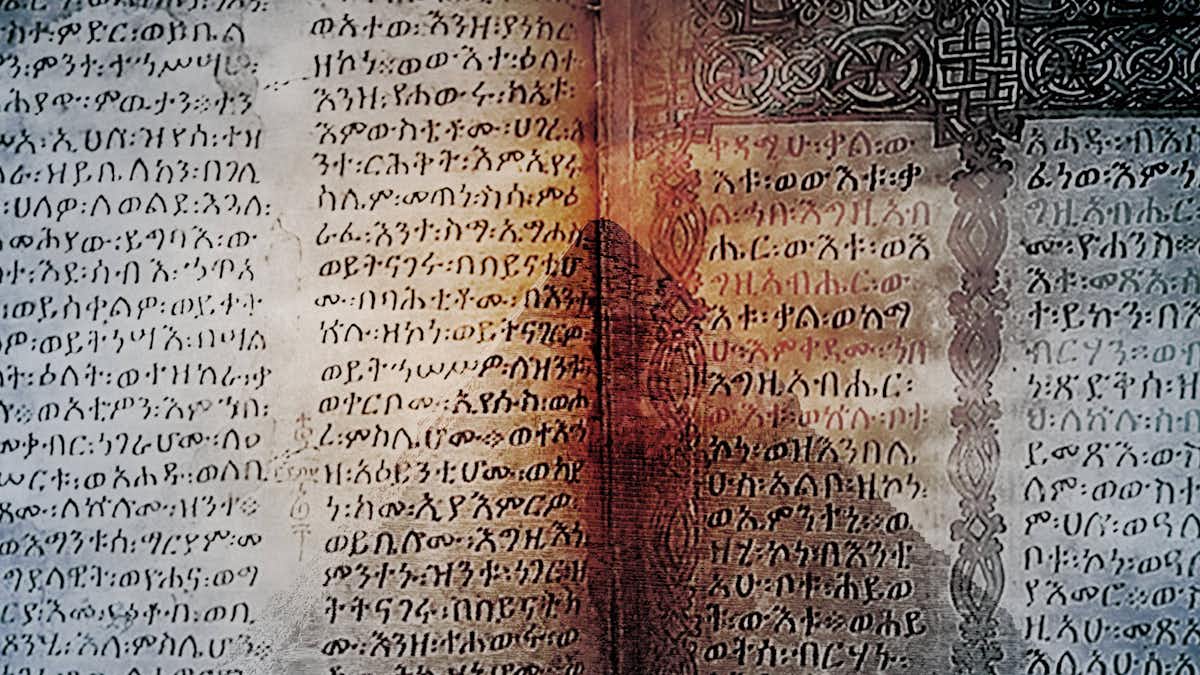 ስተ፡ምድር፡ወይቤል
ን፡ምንተ፡ተኀሥሣ፡
ምውታን፡፡ተን
ሥአ፡ኢሀሎ፡ዝየሰ፡ተዘ
ከራ፡ዘይቤለክን፡በገሊ
፡ሀለዎ፡ለወልደ፡እጓለ፡
እመሕያው፡ይግባእ፡ው
ስተ፡እደ፡ሰብእ፡ኃጥኣ
፡ወይሰቀልዎ፡ወይቀት
ልዎ፡ወይትነሣእ፡በሣል
ስት፡ዕለት፡ወተዘከራ፡ቃ
ሎ፡፡ወአቲዎን፡እምኀበ፡
መቃብር፡ነገራሆሙ፡ለዐ
ሠርቱ፡ወአሐዱ፡ወለቢ
ጾሙ፡ለኵሎሙ፡ዝንተ፡፡
ወእማንቱሰ፡ማርያም፡መ
ግደላዊት፡ወዮሐና፡ወማ
ርያ፡እመ፡ያዕቆብ፡ወቢ
ጾንሂ፡እለ፡ምስሌሆን፡፡
ወአተወ፡እንዘ፡ያነክር
ዘኮነ፡፡ወውእተ፡ዕለተ፡
እንዘ፡የሐውሩ፡
እምውስቴቶሙ፡ሀገረ፡እ
ንተ፡ርሕቅት፡እምኢየሩ
ስሌም፡መጠነ፡ስሳ፡ምዕ
ራፈ፡እንተ፡ስማ፡
ወይትናገሩ፡በበይናቲሆ
ሙ፡በባሕቲቶሙ፡በእንተ
ኵሉ፡ዘኮነ፡ወይትናገርዎ
ወይትኃሠሥዎ፡ለዝንቱ
ወቀርቦሙ፡ኢየሱስ፡ወሖ
ረ፡ምስሌሆሙ፡፡ወተእኅ
ዘ፡አዕይንቲሆሙ፡
ከመ፡ኢያእምርዎ
ወይቤሎሙ፡እግዚእነ
ምንተኑ፡ዝንቱ፡ነገር፡ዘ
ትትናገሩ፡በበይናትክ
ሙ፡እንዘ፡ተሐውሩ፡ወ
ቀዳሚሁ፡ቃል፡ው
እቱ፡ወውእቱ፡ቃ
ል፡ኀበ፡እግዚአብ
ሔር፡ውእቱ፡ወእ
ግዚአብሔር፡ው
እቱ፡ቃል፡ወከማ
ሁ፡እምቀዳሙ፡ኀበ
እግዚአብሔር፡
ውእቱ፡ወኵሉ፡ቦቱ፡
ኮነ፡ወዘእንበሌ
ሁሰ፡አልቦ፡ዘኮነ፡
ወኢምንተኒ፡፡ወ
ዘሂ፡ኮነ፡በእንቲ
አሁ፡ቦቱ፡ሕይወ
ት፡ውእቱ፡፡ወሕይ
ወትሰ፡ብርሃኑ፡
አሐዱ፡ብእሲ
ፈነወ፡እምኀ
ግዚአብሔር
ሙ፡ዮሐንስ፡፡
እቱ፡መጽአ፡
ት፡ይኩን፡በእ
ብርሃን፡፡ወብ
ነ፡ጽድቅሰ፡ዘ
ሁ፡ለኵሉ፡ሰብ
ይመጽእ፡ውስ
ለም፡ወውስተ
ም፡ሀሎ፡ወዓለ
ቦቱ፡ኮነ፡ወዓለ
ያእምሮ፡፡ው
ዚአሁ፡መጽአ
እሊአሁሰ፡አ